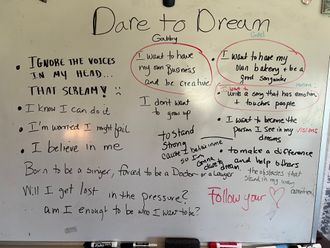 Dare to Dream
IGNORE THE VOICES
IN MY HEAD...
THAT SCREAM!
I know I can do it
I'm worried I might fail
I believe in me
Gabby
I want to have
my own Business
and be creative
I don't want
to grow up
to stand
Strong
cause I believe in me
so I'm
dare to dream
I want to have my
own bakery + be a
good songwriter
I want to
write a song that has emotion +
touches people
I want to become the
person I see in my VISIONS
dreams
to make a difference
and help others
the obstacles that
stand in my way
Born to be a singer, forced to be a Doctor or a Lawyer
Will I get lost in the pressure?
am I enough to be who I want to be?
Follow your